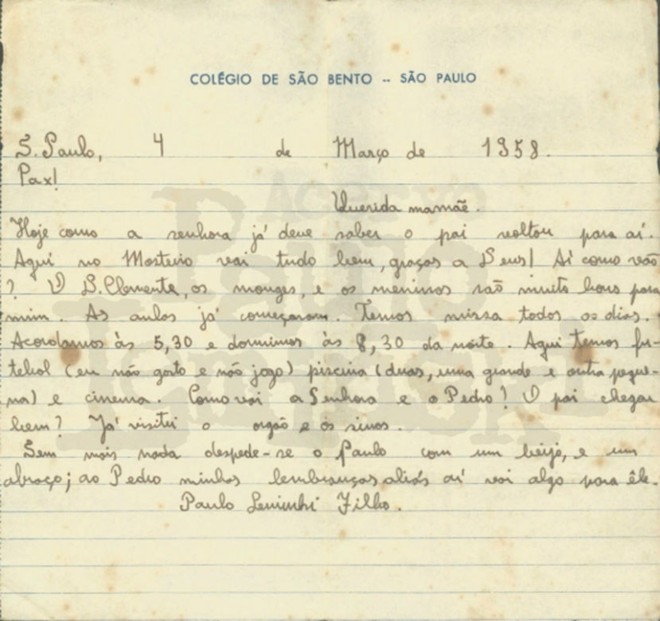 COLÉGIO DE SÃO BENTO -- SÃO PAULO
S. Paulo, 4 de Março de 1958.
Pax!
Querida mamãe.
Hoje como a senhora já deve saber o pai voltou para aí.
Aqui no Mosteiro vai tudo bem, graças a Deus! Aí como vão
? O D. Clemente, os monges, e os meninos são muito bons para
mim. As aulas já começaram. Temos missa todos os dias.
Acordamos às 5,30 e dormimos às 8,30 da noite. Aqui temos fu-
tebol (eu não gosto e não jogo) piscina (duas, uma grande e outra peque-
na) e cinema. Como vai a Senhora e o Pedro? O pai chegou
bem? Já visitei o orgão e os sinos.
Sem mais nada despede-se o Paulo com um beijo, e um
abraço; ao Pedro minhas lembranças aliás aí vai algo para êle.
Paulo Leminski Filho.